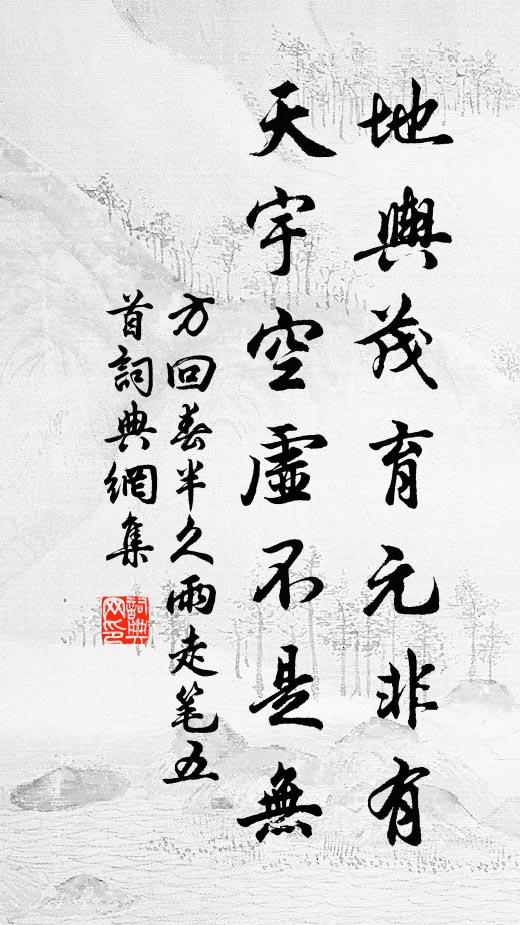 地輿茂育元非有
天宇空虛不是無
方回春半久雨走笔五
首詞典網集
詞典
网印